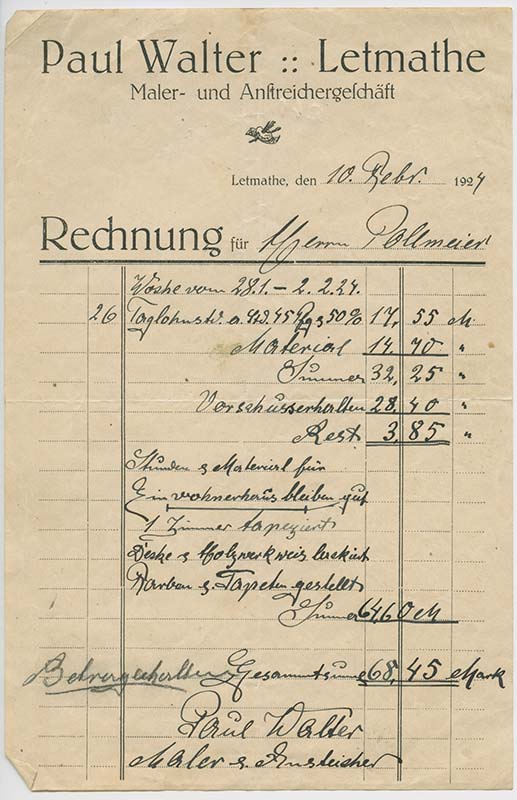 Paul Walter :: Letmathe
Maler- und Anstreichergeschäft
Letmathe, den 10. Febr. 1924
Rechnung für Herrn Pollmeier
Woche vom 28.1. – 2.2.24.
26 Taglohnstd. a. Std. 45 Pfg 50% 17,55 M
Material 14,70 "
Summer 32,25 "
Vorschusserhalten 28,40 "
Rest 3,85 "
Stunden & Material für
Einwohnerhaus bleiben gut
1 Zimmer tapeziert
Decke & Holzwerk weis lackiert
Farben & Tapeten gestellt
Summer 64,60 M
Betragerhalten Gesammtsume 68,45 Mark
Paul Walter
Maler & Ansteicher